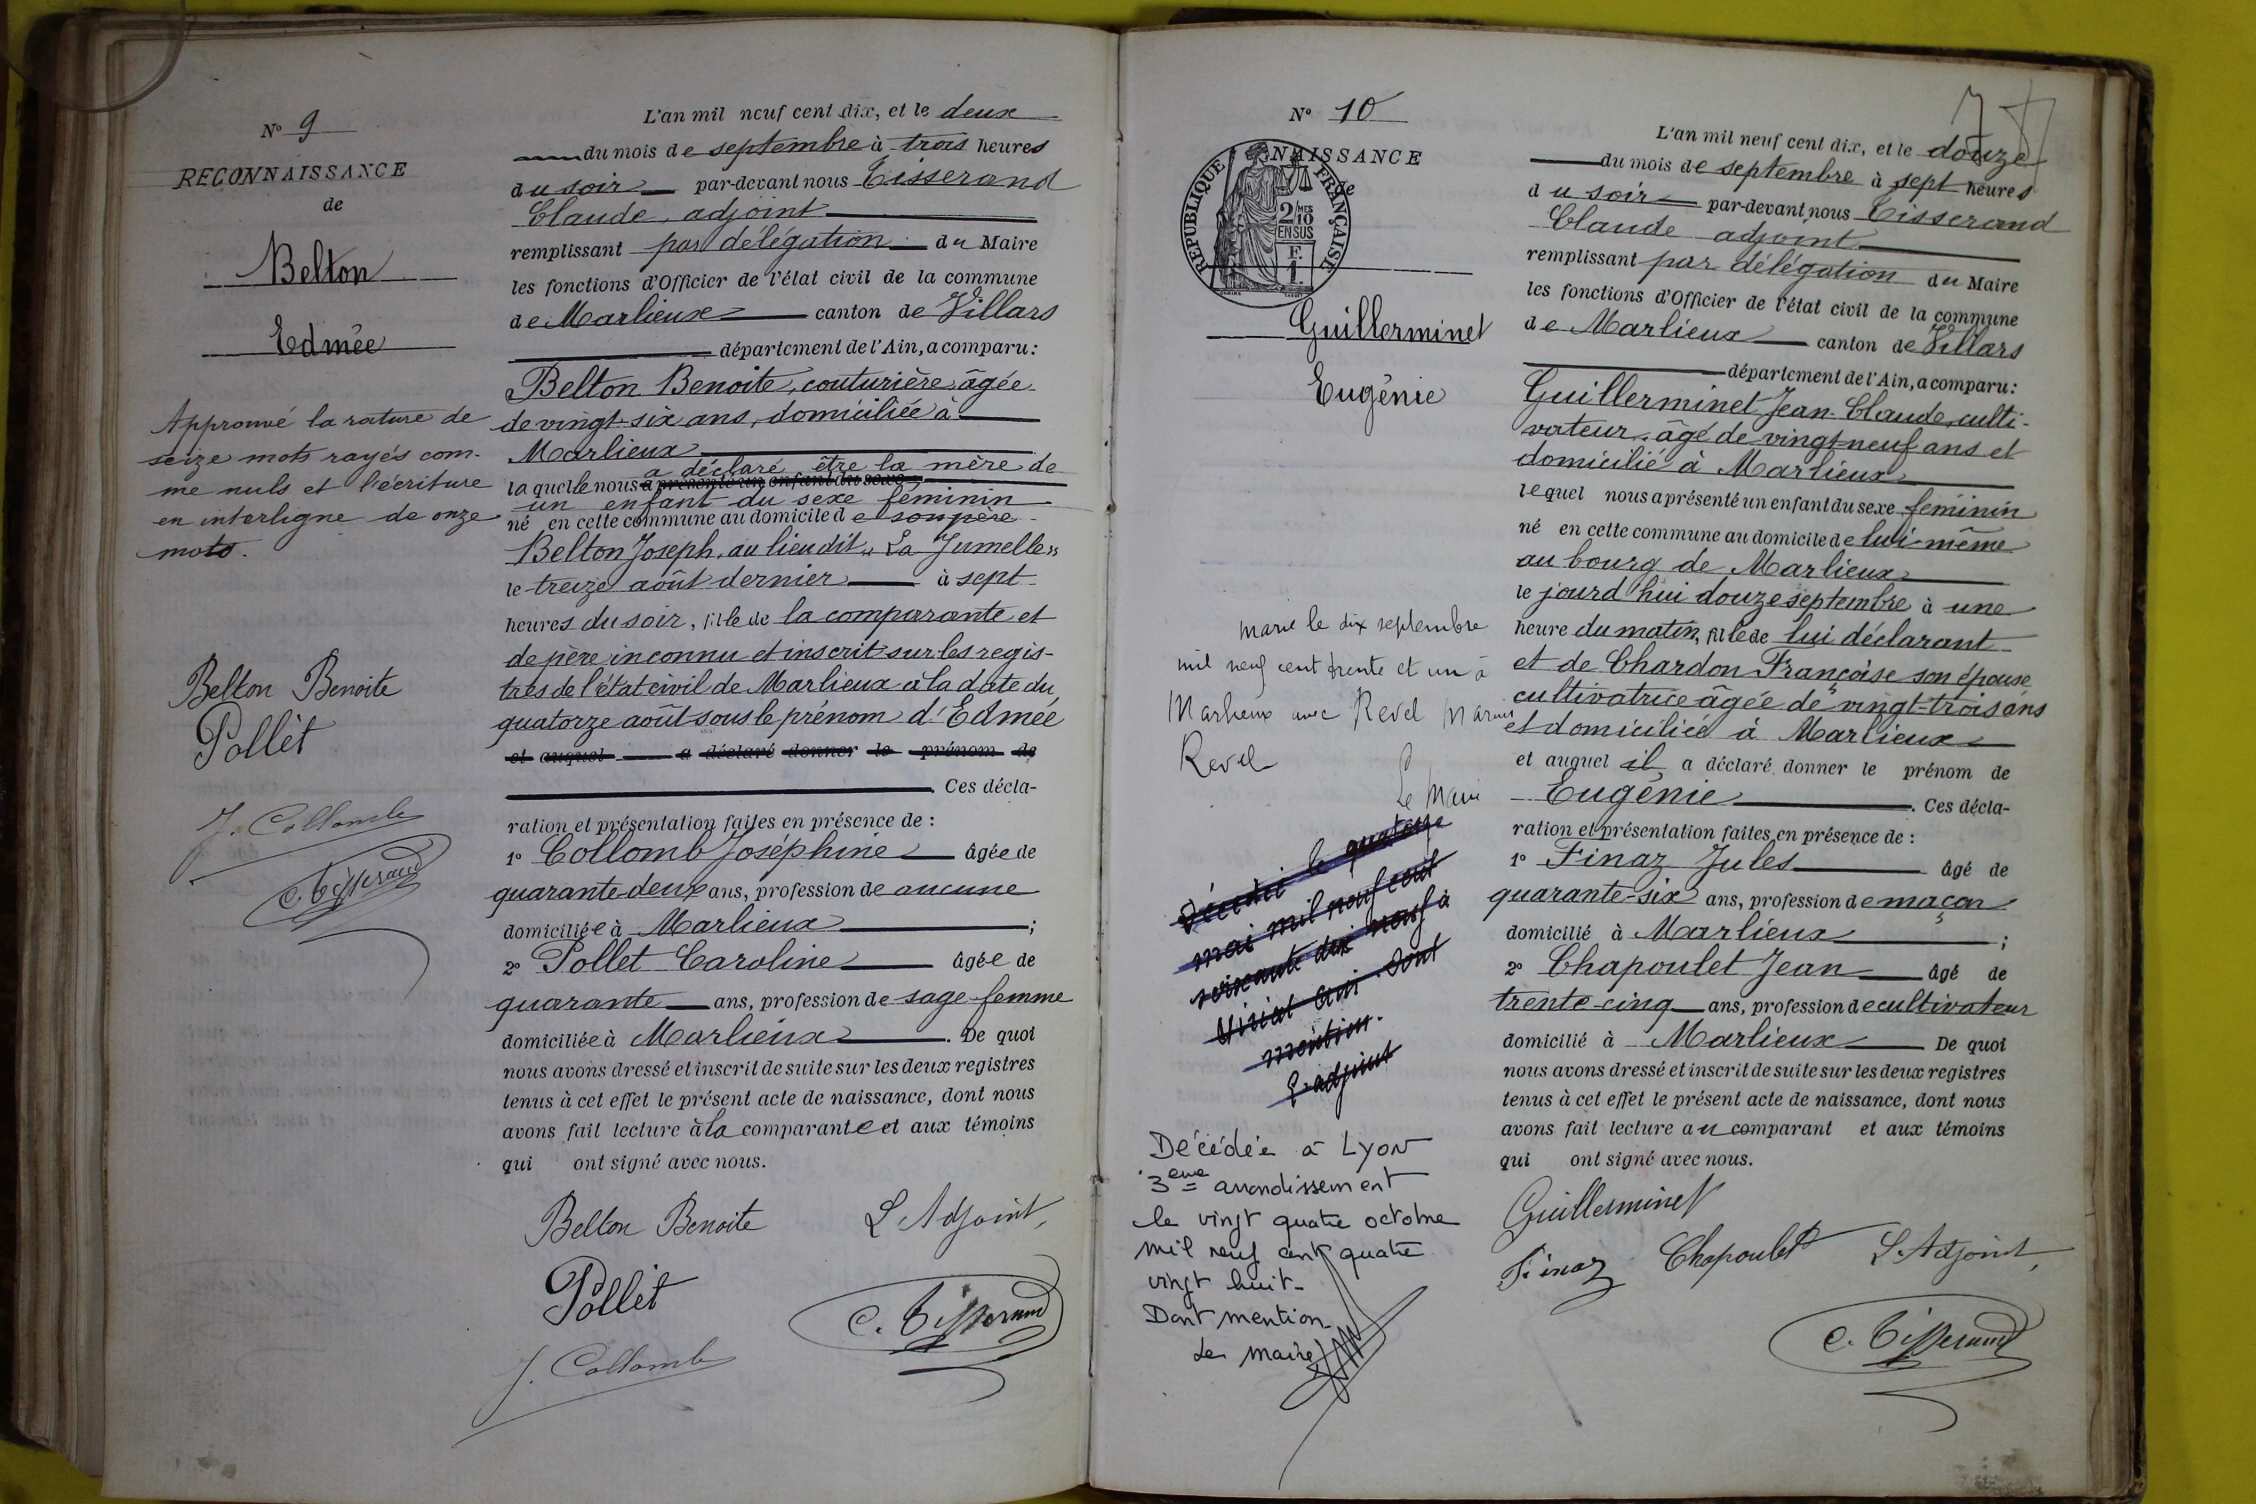 N° 9
RECONNAISSANCE
de
Belton
Edmée
Approuvé la rature de
seize mots rayés com-
me nuls et l'écriture
en interligne de onze
mots.
Belton Benoite
Pollet
J. Collomb
C. Tisserand
L'an mil neuf cent dix, et le deux
du mois de septembre à trois heures
du soir par-devant nous Tisserand
Claude, adjoint
remplissant par délégation du Maire
les fonctions d'Officier de l'état civil de la commune
de Marlieux canton de Villars
département de l'Ain, a comparu :
Belton Benoite, couturière, âgée
de vingt-six ans, domiciliée à
Marlieux
a déclaré être la mère de
laquelle nous a présenté un enfant du sexe
un enfant du sexe féminin
né en cette commune au domicile de son père
Belton Joseph, au lieu dit "La Jumelle"
le treize août dernier à sept
heures du soir, fille de la comparante et
de père inconnu et inscrit sur les regis-
tres de l'état civil de Marlieux à la date du
quatorze août sous le prénom d'Edmée
et auquel a déclaré donner le prénom de
. Ces décla-
ration et présentation faites en présence de :
1° Collomb Joséphine âgée de
quarante-deux ans, profession de aucune
domiciliée à Marlieux ;
2° Pollet Caroline âgée de
quarante ans, profession de sage-femme
domiciliée à Marlieux . De quoi
nous avons dressé et inscrit de suite sur les deux registres
tenus à cet effet le présent acte de naissance, dont nous
avons fait lecture à la comparante et aux témoins
qui ont signé avec nous.
Belton Benoite L'Adjoint,
Pollet
C. Tisserand
J. Collomb
N° 10
NAISSANCE
de
RÉPUBLIQUE FRANÇAISE
2/10
EN SUS
F.
1.
Guillerminet
Eugénie
Marié le dix septembre
mil neuf cent trente et un à
Marlieux avec Revel Marius
Revel
Le Maire
Décédé le quatorze
mai mil neuf cent
soixante dix neuf à
Viriat Ain. Dont
mention.
L'adjoint
Décédée à Lyon
3eme arrondissement
le vingt quatre octobre
mil neuf cent quatre
vingt huit-
Dont mention-
Le maire
L'an mil neuf cent dix, et le douze
du mois de septembre à sept heures
du soir par-devant nous Tisserand
Claude adjoint
remplissant par délégation du Maire
les fonctions d'Officier de l'état civil de la commune
de Marlieux canton de Villars
département de l'Ain, a comparu :
Guillerminet Jean-Claude, culti-
vateur, âgé de vingt-neuf ans et
domicilié à Marlieux
lequel nous a présenté un enfant du sexe féminin
né en cette commune au domicile de lui-même
au bourg de Marlieux
le jourd'hui douze septembre à une
heure du matin, fille de lui déclarant
et de Chardon Françoise son épouse
cultivatrice âgée de vingt-trois ans
et domiciliée à Marlieux
et auquel il a déclaré donner le prénom de
Eugénie . Ces décla-
ration et présentation faites en présence de :
1° Finaz Jules âgé de
quarante-six ans, profession de maçon
domicilié à Marlieux ;
2° Chapoulet Jean âgé de
trente-cinq ans, profession de cultivateur
domicilié à Marlieux De quoi
nous avons dressé et inscrit de suite sur les deux registres
tenus à cet effet le présent acte de naissance, dont nous
avons fait lecture au comparant et aux témoins
qui ont signé avec nous.
Guillerminet
Finaz Chapoulet L'Adjoint,
C. Tisserand